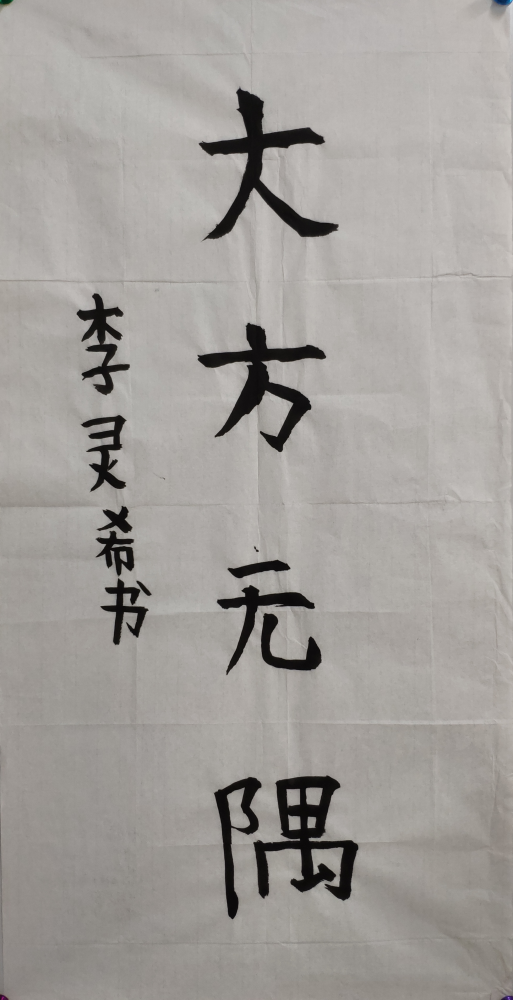 大方元隅
李灵希书